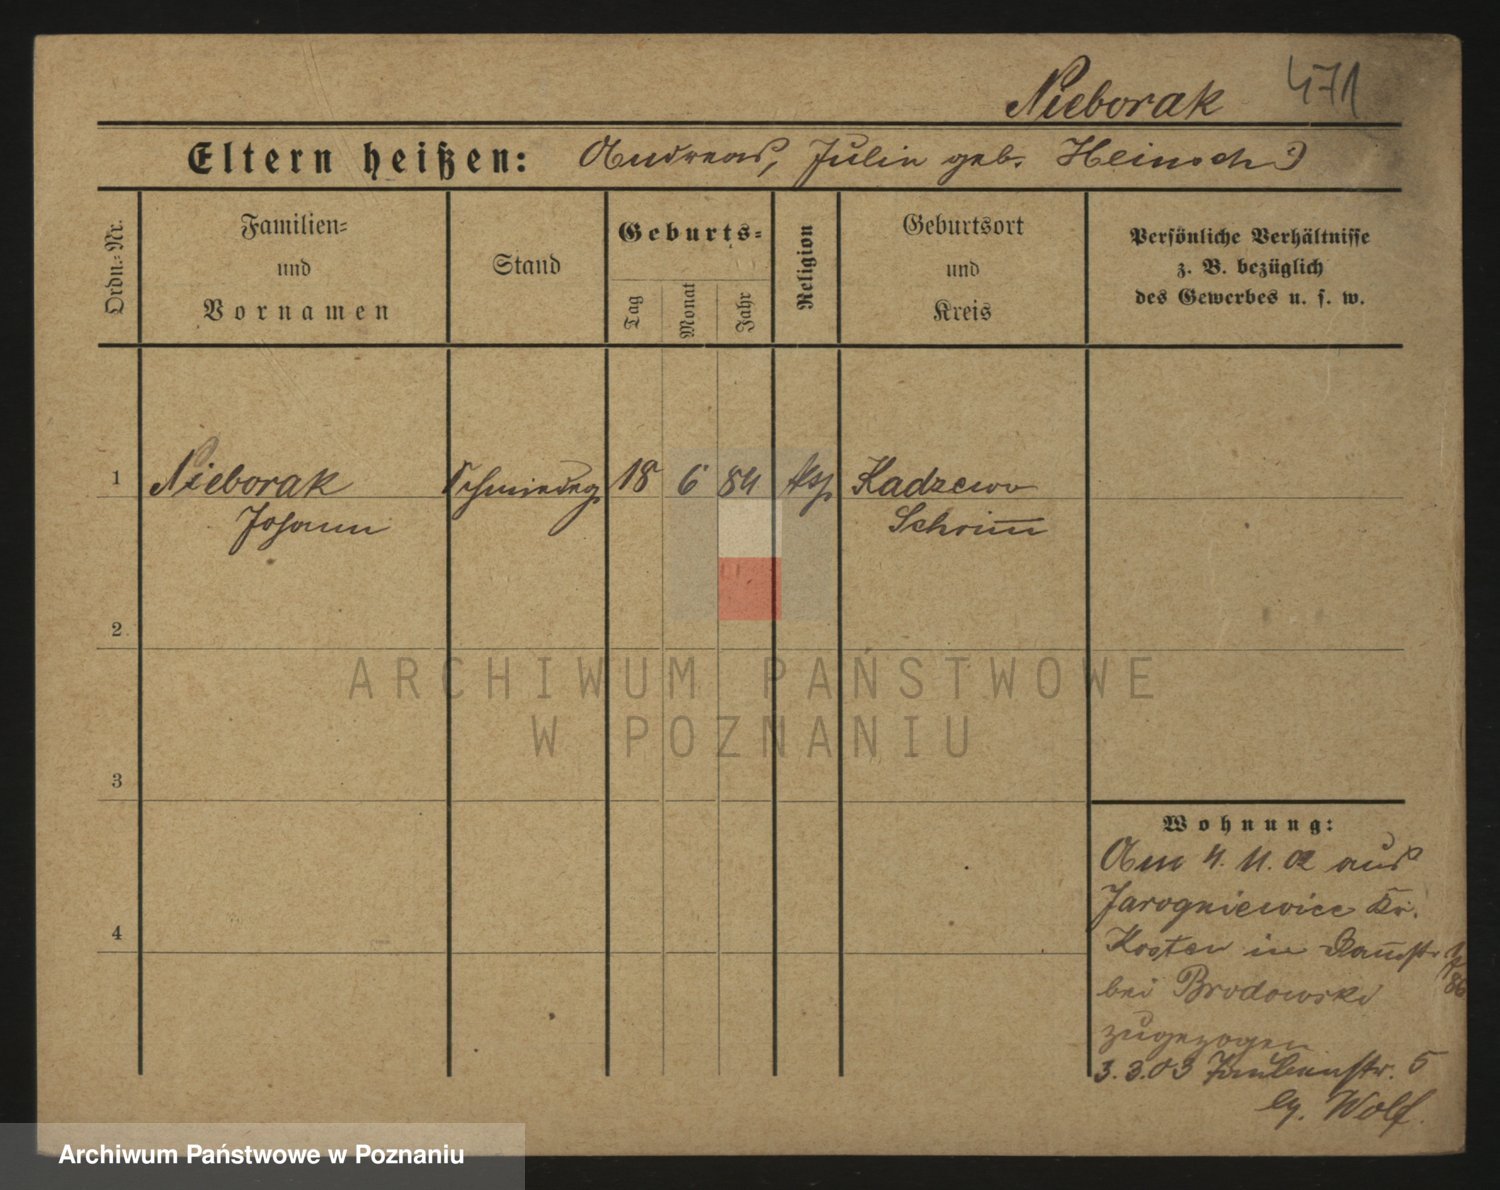 Nieborak 471
Eltern heißen: Andreas, Julia geb. Heinsch
Ordn.-Nr.
Familien-
und
Vornamen
Stand
Geburts-
Tag
Monat
Jahr
Religion
Geburtsort
und
Kreis
Persönliche Verhältnisse
z. B. bezüglich
des Gewerbes u. s. w.
1 Nieborak 18 6 84 Kadzewo
Johann Schrim̅
2
ARCHIWUM PAŃSTWOWE
W POZNANIU
3
4
Wohnung:
Am 4. 11. 02 aus
Jarogniewice Kr.
Kosten in
bei Brodowski
zugezogen
3.3.03 5
Wolf.
Archiwum Państwowe w Poznaniu